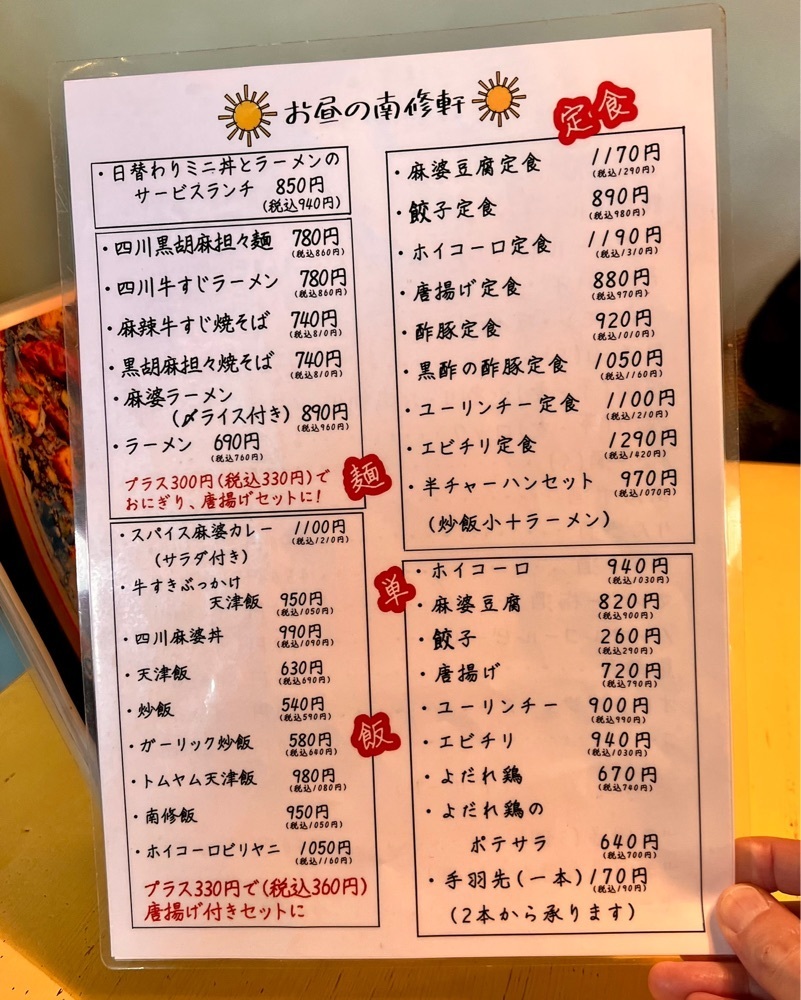 お昼の南修軒
・日替わりミニ丼とラーメンの
サービスランチ 850円
(税込940円)
・四川黒胡麻担々麺 780円
(税込860円)
・四川牛すじラーメン 780円
(税込860円)
・麻辣牛すじ焼そば 740円
(税込810円)
・黒胡麻担々焼そば 740円
(税込810円)
・麻婆ラーメン
(〆ライス付き) 890円
(税込960円)
・ラーメン 690円
(税込760円)
プラス300円(税込330円)で
おにぎり、唐揚げセットに!
麺
・スパイス麻婆カレー 1100円
(税込1210円)
(サラダ付き)
・牛すきぶっかけ
天津飯 950円
(税込1050円)
・四川麻婆丼 990円
(税込1090円)
・天津飯 630円
(税込690円)
・炒飯 540円
(税込590円)
・ガーリック炒飯 580円
(税込640円)
飯
・トムヤム天津飯 980円
(税込1080円)
・南修飯 950円
(税込1050円)
・ホイコーロビリヤニ 1050円
(税込1160円)
プラス330円で(税込360円)
唐揚げ付きセットに
定食
・麻婆豆腐定食 1170円
(税込1290円)
・餃子定食 890円
(税込980円)
・ホイコーロ定食 1190円
(税込1310円)
・唐揚げ定食 880円
(税込970円)
・酢豚定食 920円
(税込1010円)
・黒酢の酢豚定食 1050円
(税込1160円)
・ユーリンチー定食 1100円
(税込1210円)
・エビチリ定食 1290円
(税込1420円)
・半チャーハンセット 970円
(税込1070円)
(炒飯小+ラーメン)
単
・ホイコーロ 940円
(税込1030円)
・麻婆豆腐 820円
(税込900円)
・餃子 260円
(税込290円)
・唐揚げ 720円
(税込790円)
・ユーリンチー 900円
(税込990円)
・エビチリ 940円
(税込1030円)
・よだれ鶏 670円
(税込740円)
・よだれ鶏の
ポテサラ 640円
(税込700円)
・手羽先(一本)170円
(税込190円)
(2本から承ります)